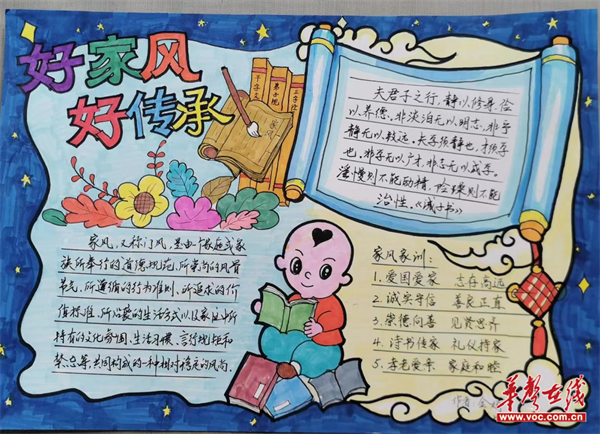 好家风
好传承
千字文
弟子规
三字经
家风
夫君子之行,静以修身,俭
以养德,非淡泊无以明志,非宁
静无以致远。夫学须静也,才须学
也,非学无以广才,非志无以成学。
淫慢则不能励精,险躁则不能
治性。《诫子书》
家风,又称门风,是由一个家庭或家
族所奉行的道德规范、所崇尚的风骨
节气、所遵循的行为准则、所追求的价
值标准、所心爱的生活方式以及家庭中所
持有的文化氛围、生活习惯、言行规矩和
禁忌等,共同构成的一种相对稳定的风尚。
家风家训:
1.爱国爱家 志存高远
2.诚实守信 善良正直
3.崇德向善 见贤思齐
4.诗书传家 礼仪持家
5.孝老爱亲 家庭和睦
作者:
华声在线
www.voc.com.cn